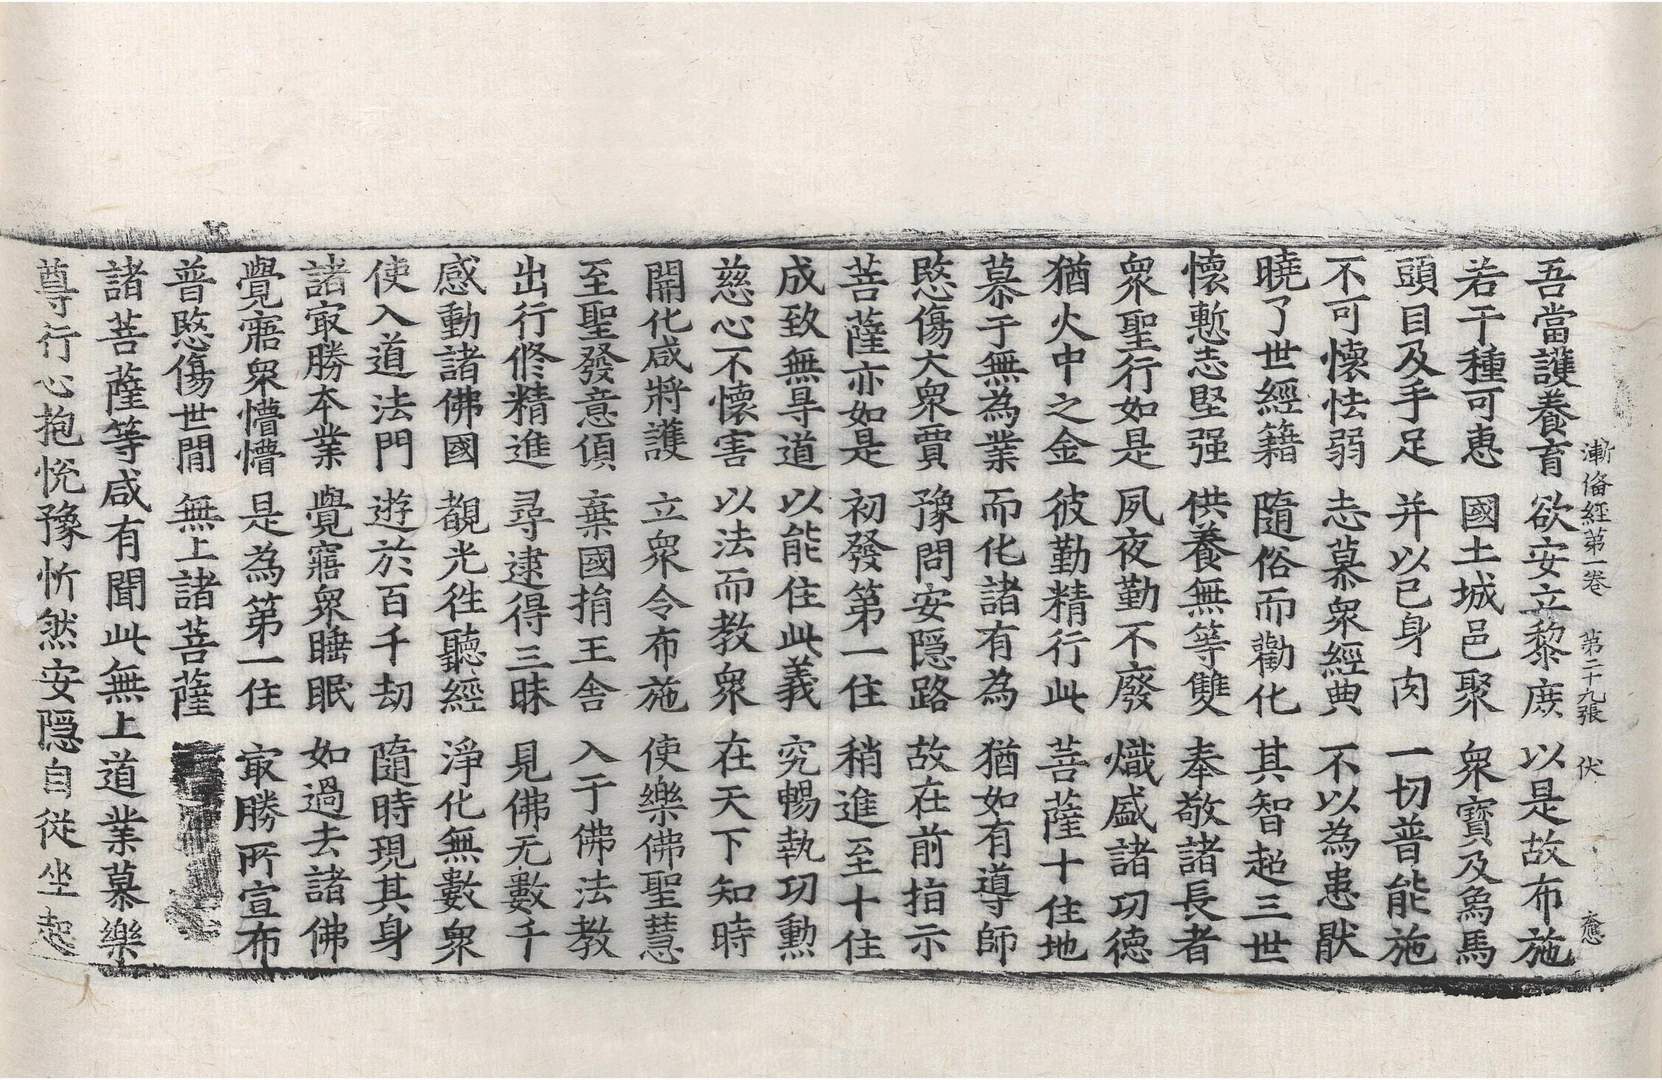 漸俻經第一卷　第二十九張　伏　應
吾當護養育　欲安立黎庶　以是故布施
若干種可恵　國土城邑聚　衆寶及象馬
頭目及手足　并以己身肉　一切普能施
不可懷怯弱　志慕衆經典　不以為患猒
曉了世經籍　隨俗而勸化　其智超三世
懷慙志堅强　供養無等雙　奉敬諸長者
衆聖行如是　夙夜勤不廢　熾盛諸功德
猶火中之金　彼勤精行此　菩薩十住地
慕于無為業　而化諸有為　猶如有導師
愍傷大衆賈　豫問安隱路　故在前指示
菩薩亦如是　初發第一住　稍進至十住
成致無㝵道　以能住此義　究暢執功勳
慈心不懷害　以法而教衆　在天下知時
開化咸將護　立衆令布施　使樂佛聖慧
至聖發意頃　棄國捐王舍　入于佛法教
出行修精進　尋逮得三昧　見佛无數千
感動諸佛國　覩光徃聽經　淨化無數衆
使入道法門　遊於百千劫　隨時現其身
諸㝡勝本業　覺寤衆睡眠　如過去諸佛
覺寤衆懵懵　是為第一住　㝡勝所宣布
普愍傷世間　無上諸菩薩
諸菩薩等咸有聞此無上道業慕樂
尊行心抱恱豫忻然安隱自從坐起